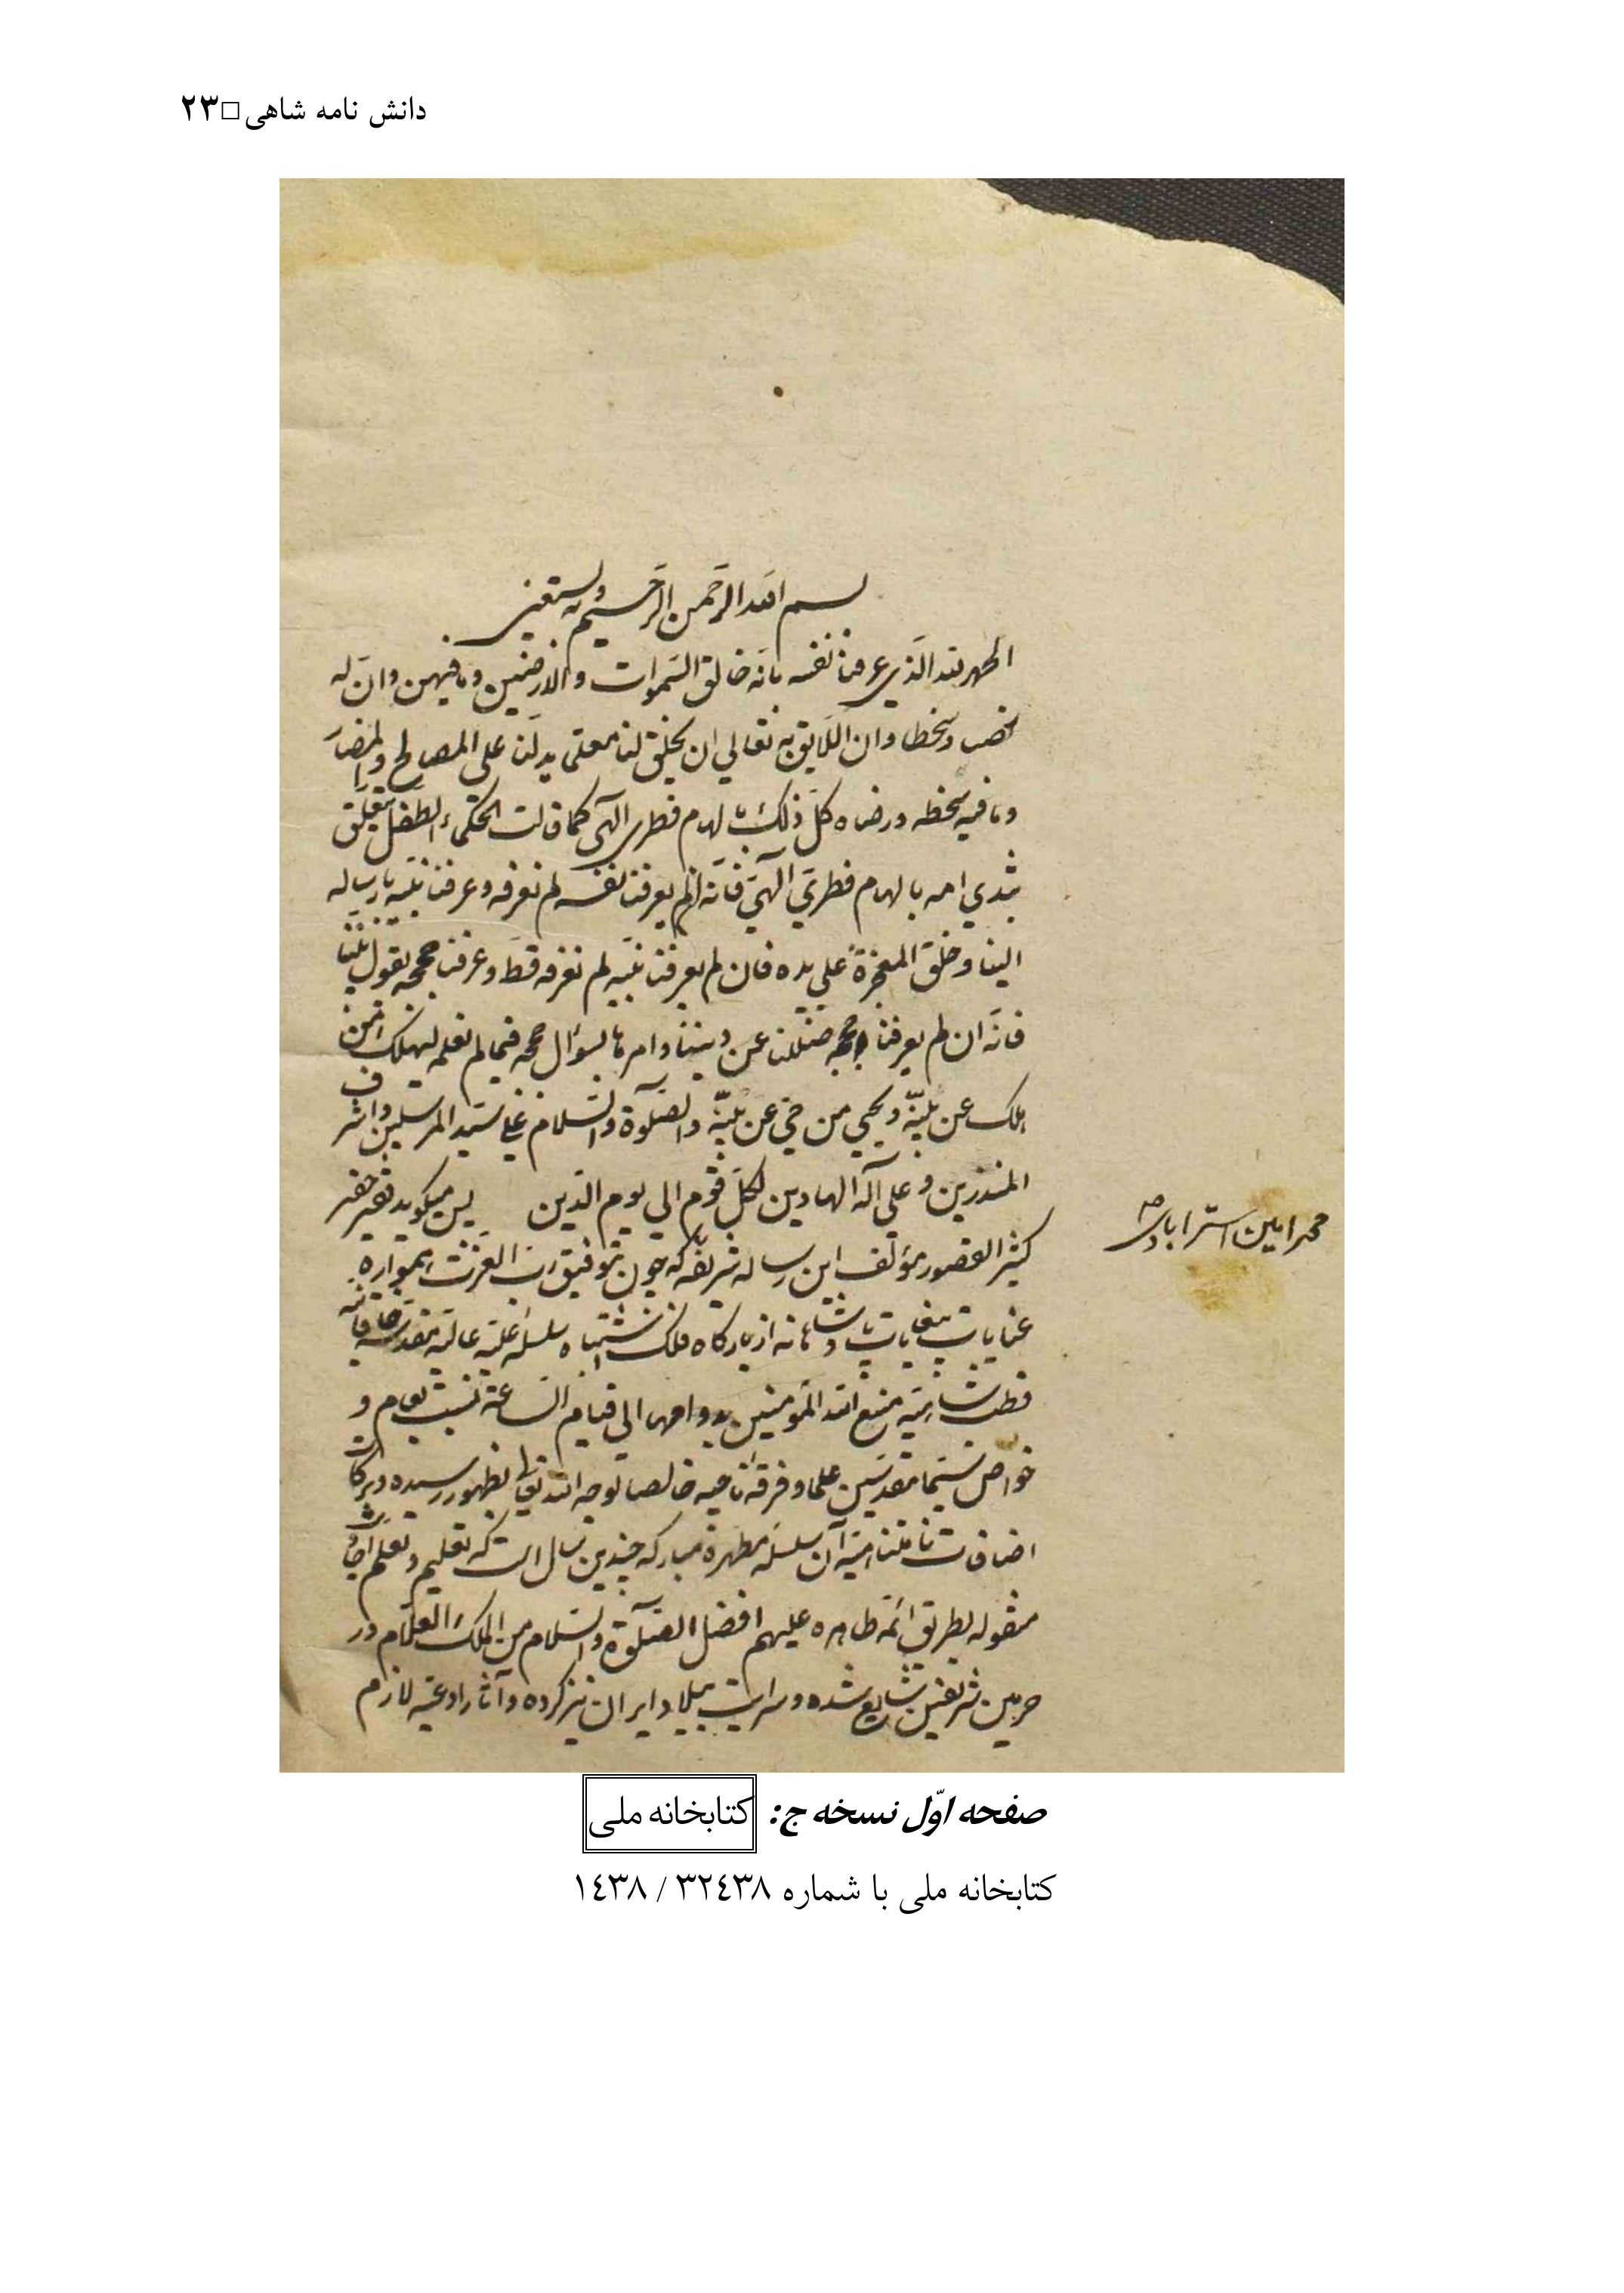 دانش نامه شاهی □ ۲۳
بسم الله الرحمن الرحیم وبه نستعین
الحمد لله الذی عرفنا نفسه بانّه خالق السموات والارضین وما فیهن وانّ له
وسخطا وان اللایق به تعالی ان یخلق لنا معلّما یدلّنا علی المصالح والمضار
وما فیه سخطه ورضاه کلّ ذلک بالهام فطری الهی کما قالت الحکماء الطفل یتعلّق
بثدی امه بالهام فطریّ الهیّ فانّه لم یعرفنا نفسه لم نعرفه وعرفنا نبیّه بارساله
الینا وخلق المعجزة علی یده فان لم یعرفنا نبیّه لم نعرفه قطّ وعرفنا حججه بقول نبیّنا
فانّه ان لم یعرفنا حججه ضللنا عن دیننا وامرنا بسؤال حججه فیما لم نعلمه لیهلک من
هلک عن بیّنة ویحیی من حیّ عن بیّنة والصلوة والسلام علی سیّد المرسلین واشرف
المنذرین وعلی آله الهادین لکلّ قوم الی یوم الدّین پس میگوید فقیر حقیر
محمد امین استرابادی
کثیر القصور مؤلّف این رساله شریفه که چون بتوفیق ربّ العزت همواره
عنایات بیغایات پادشاهانه از بارگاه فلک اشتباه سلسله علیّه عالیه مقدّسه
قطب شاهیّه متّع الله المؤمنین بدوامهم الی قیام الساعة نسبت بعوام و
خواص سیّما مقدّسین علما وفرقه ناجیه خالصا لوجه الله تعالی بظهور رسیده وبرکات
اضافات نامتناهیه آن سلسله مطهره مبارکه چندین سال است که تعلیم وتعلّم احادیث
منقوله بطریق ائمّه طاهره علیهم افضل الصلوة والسلام من الملک العلّام در
حرمین شریفین شایع شده وسرایت ببلاد ایران نیز کرده وآثار ادعیه لازم
صفحه اوّل نسخه ج: کتابخانه ملی
کتابخانه ملی با شماره ۳۲٤۳۸ / ۱٤۳۸